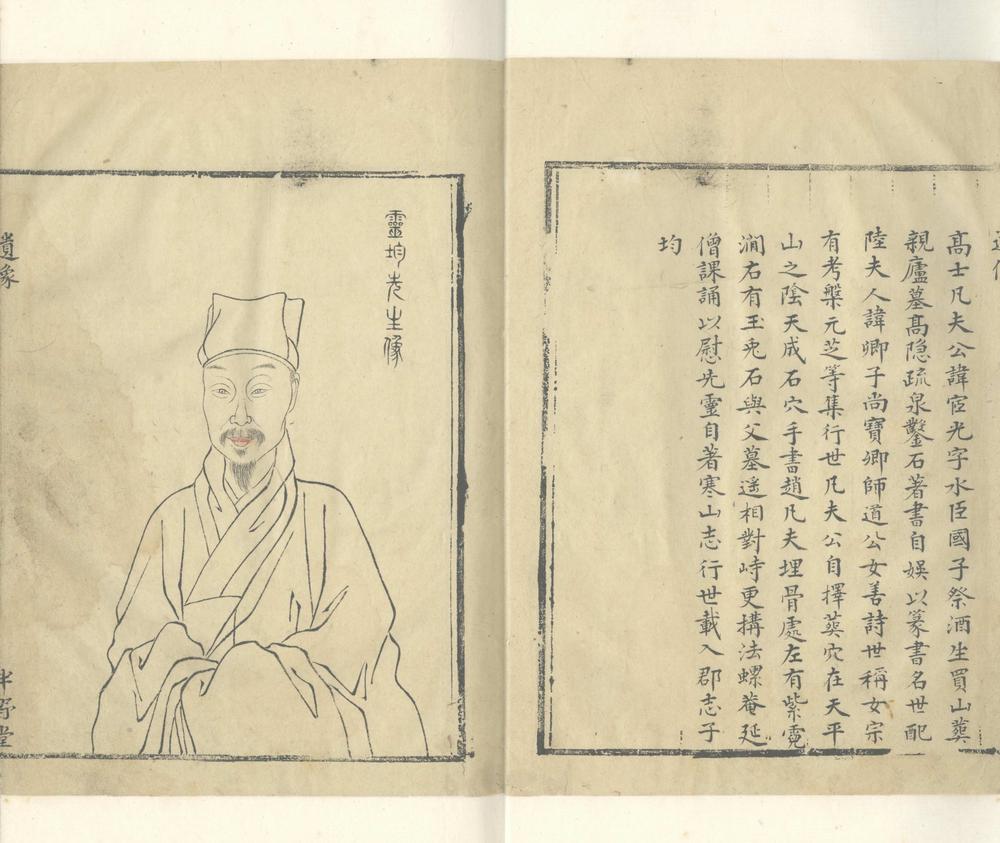 高士凡夫公諱宧光字水臣國子祭酒生買山葬
親廬墓高隐疏泉鑿石著書自娛以篆書名世配
陸夫人諱卿子尚寶卿師道公女善詩世稱女宗
有考槃元芝等集行世凡夫公自擇葬穴在天平
山之陰天成石穴手書趙凡夫埋骨處左有紫霓
澗右有玉兎石與父墓遥相對峙更搆法螺菴延
僧課誦以慰先靈自著寒山志行世載入郡志子
均
靈均先生像
遺像
半野堂